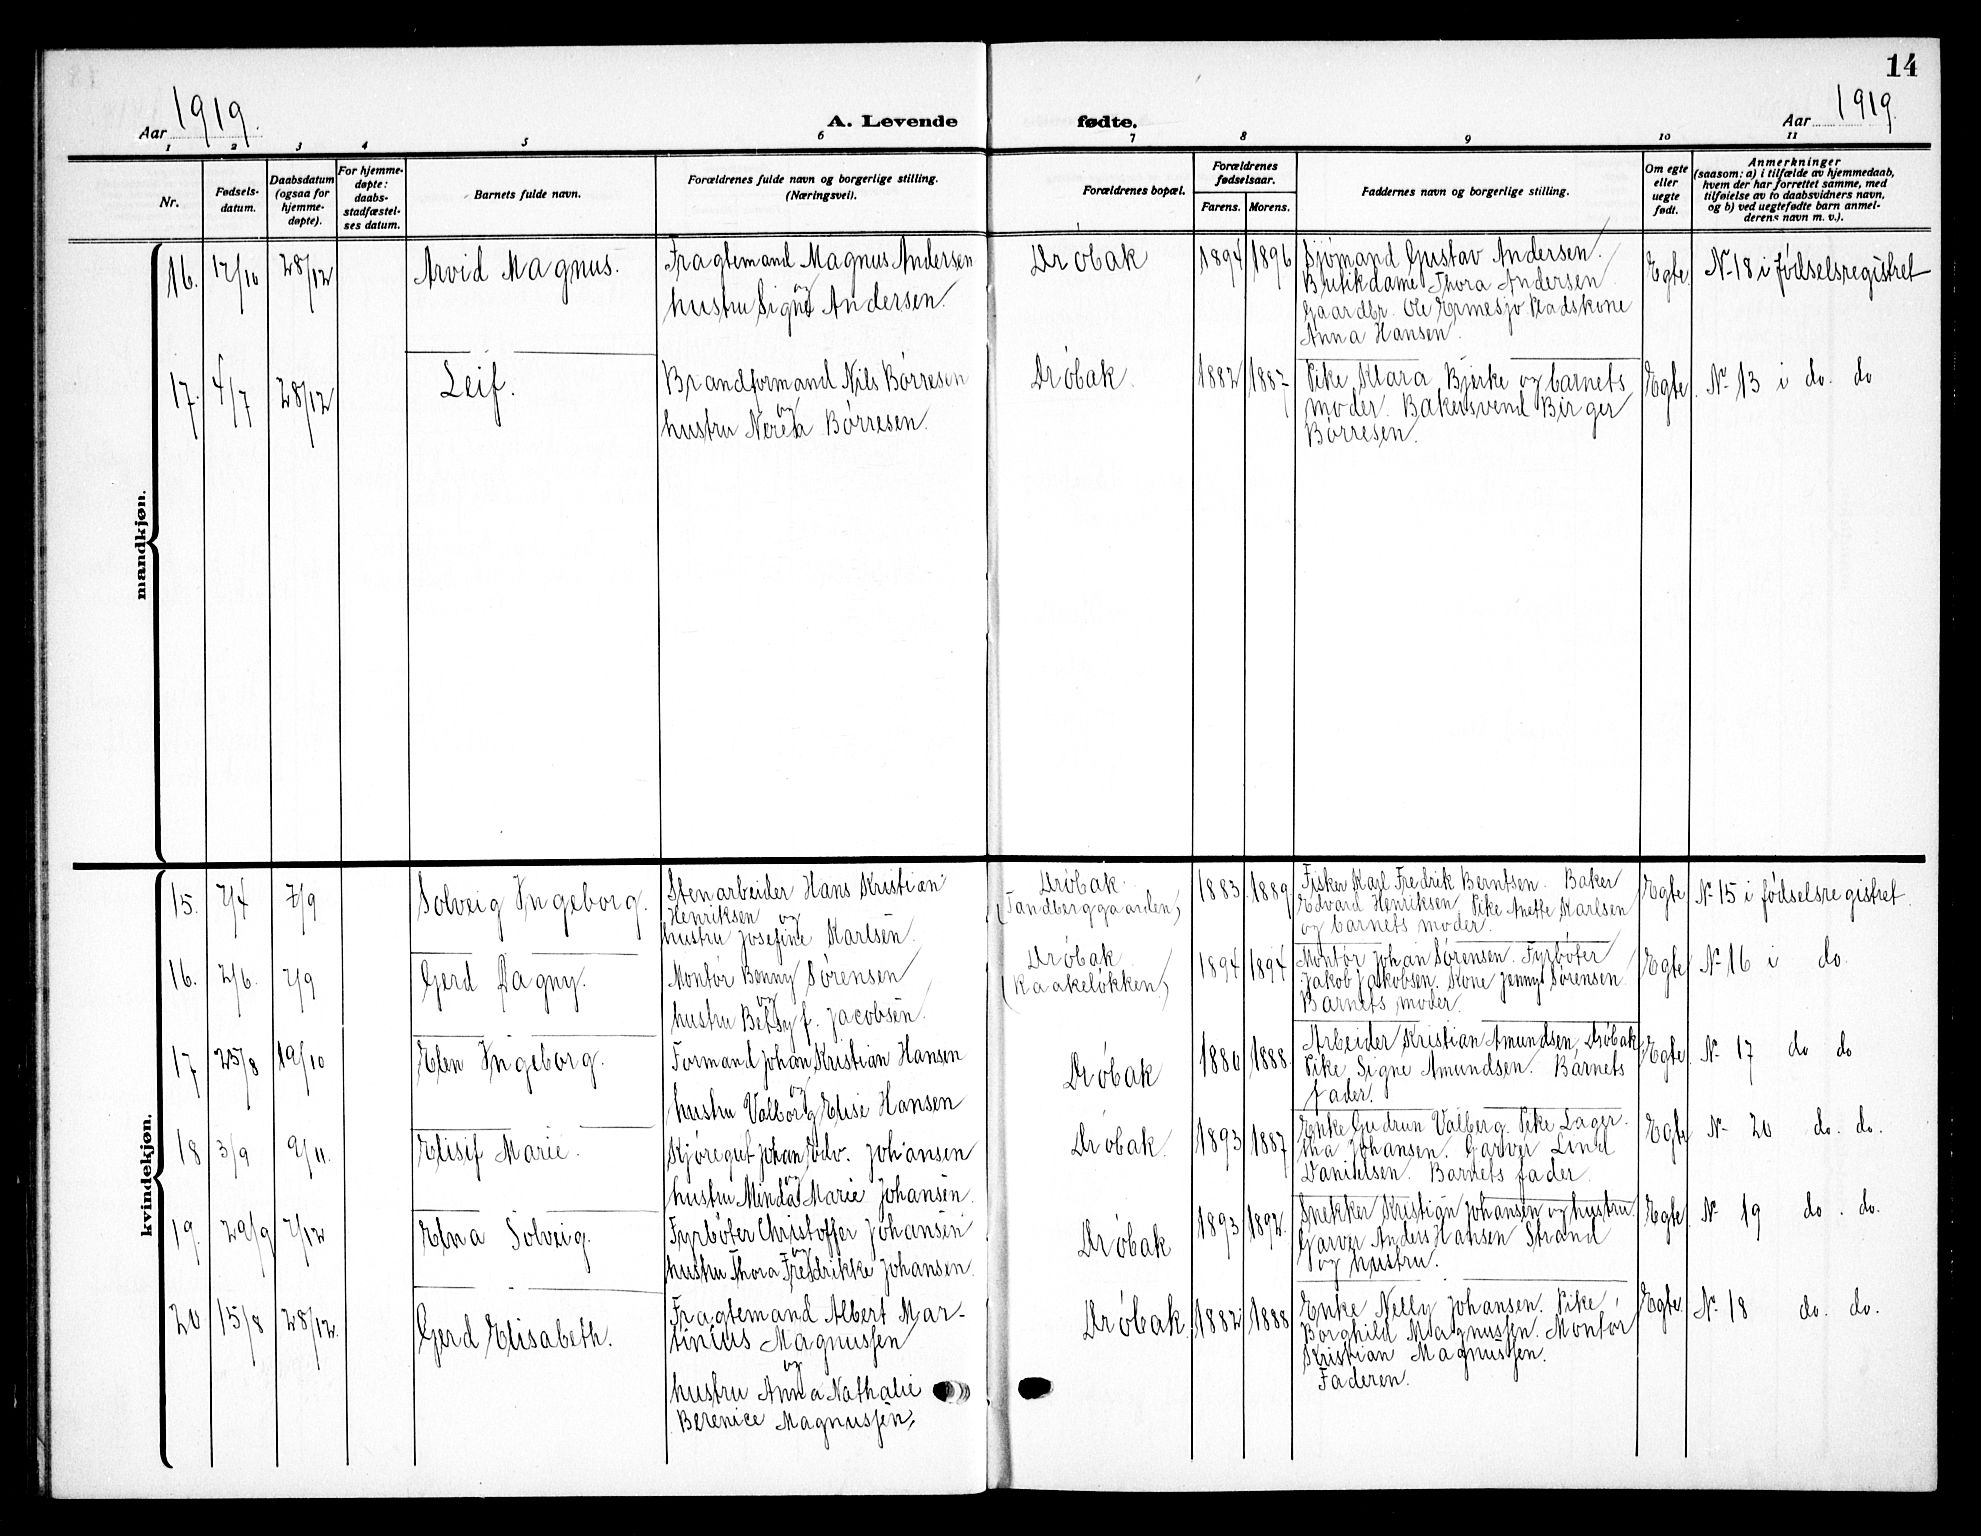 14
Aar 1919.
A. Levende fødte.
Aar 1919.
1 2 3 4 5 6 7 8 9 10 11
Nr.
Fødsels-
datum.
Daabsdatum
(ogsaa for
hjemme-
døpte).
For hjemme-
døpte:
daabs-
stadfæstel-
ses datum.
Barnets fulde navn.
Forældrenes fulde navn og borgerlige stilling.
(Næringsvei).
Forældrenes bopæl.
Forældrenes
fødselsaar.
Farens. Morens.
Faddernes navn og borgerlige stilling.
Om egte
eller
uegte
født.
Anmerkninger
(saasom: a) i tilfælde av hjemmedaab,
hvem der har forrettet samme, med
tilføielse av to daabsvidners navn,
og b) ved uegtefødte barn anmel-
derens navn m. v.).
mandkjøn.
16. 12/10 28/12 Arvid Magnus.
Fragtemand Magnus Andersen
og
hustru Signe Andersen.
Drøbak 1894 1896
Sjømand Gustav Andersen.
Butikdame Thora Andersen
Gaardbr. Ole Ermesjø Pladskone
Anna Hansen.
Egte. No 18 i fødselsregistret
17. 4/7 28/12 Leif.
Brandformand Nils Børresen
og
hustru Nerea Børresen.
Drøbak. 1882 1887
Pike Klara Bjerke og barnets
moder. Bakersvend Birger
Børresen.
Egte. No 13 i do. do
kvindekjøn.
15. 2/4 7/9 Solveig Ingeborg.
Stenarbeider Hans Kristian
Henriksen og
hustru Josefine Karlsen.
Drøbak.
(Tandberggaarden)
1883 1889
Fisker Karl Fredrik Berntsen. Baker
Edvard Henriksen Pike Anette Karlsen
og barnets moder.
Egte No 15 i fødselsregistret.
16. 2/6. 7/9 Gerd Dagny.
Montør Benny Sørensen
og
hustru Betsy f. Jacobsen.
Drøbak.
(Kaakeløkken)
1894 1894
Montør Johan Sørensen. Fyrbøter
Jakob Jakobsen. Kone Jenny Sørensen
Barnets moder.
Egte No 16 i do.
17 25/8 19/10 Elen Ingeborg.
Formand Johan Kristian Hansen
og
hustru Valborg Elise Hansen
Drøbak 1886 1888.
Arbeider Kristian Amundsen, Drøbak
Pike Signe Amundsen. Barnets
fader.
Egte. No 17 do do
18 3/9 9/11. Elisif Marie.
Kjøregut Johan Edv. Johansen
og
hustru Minda Marie Johansen.
Drøbak. 1893 1887
Enke Gudrun Valberg. Pike Lager-
tha Johansen. Garver Lind
Danielsen. Barnets fader.
Egte No 20 do. do.
19. 29/9 7/12 Elna Solveig.
Fyrbøter Christoffer Johansen
og
hustru Thora Fredrikke Johansen.
Drøbak 1893 1892.
Snekker Kristian Johansen og hustru
Garver Anders Hansen Strand
og hustru.
Egte. No 19 do. do.
20 15/8 28/12. Gerd Elisabeth.
Fragtemand Albert Mar-
tinius Magnussen
og
hustru Anna Nathalie
Berenice Magnussen,
Drøbak. 1882 1888
Enke Nelly Johansen. Pike
Borghild Magnussen. Montør
Kristian Magnussen.
Faderen.
Egte. No 18 do. do.